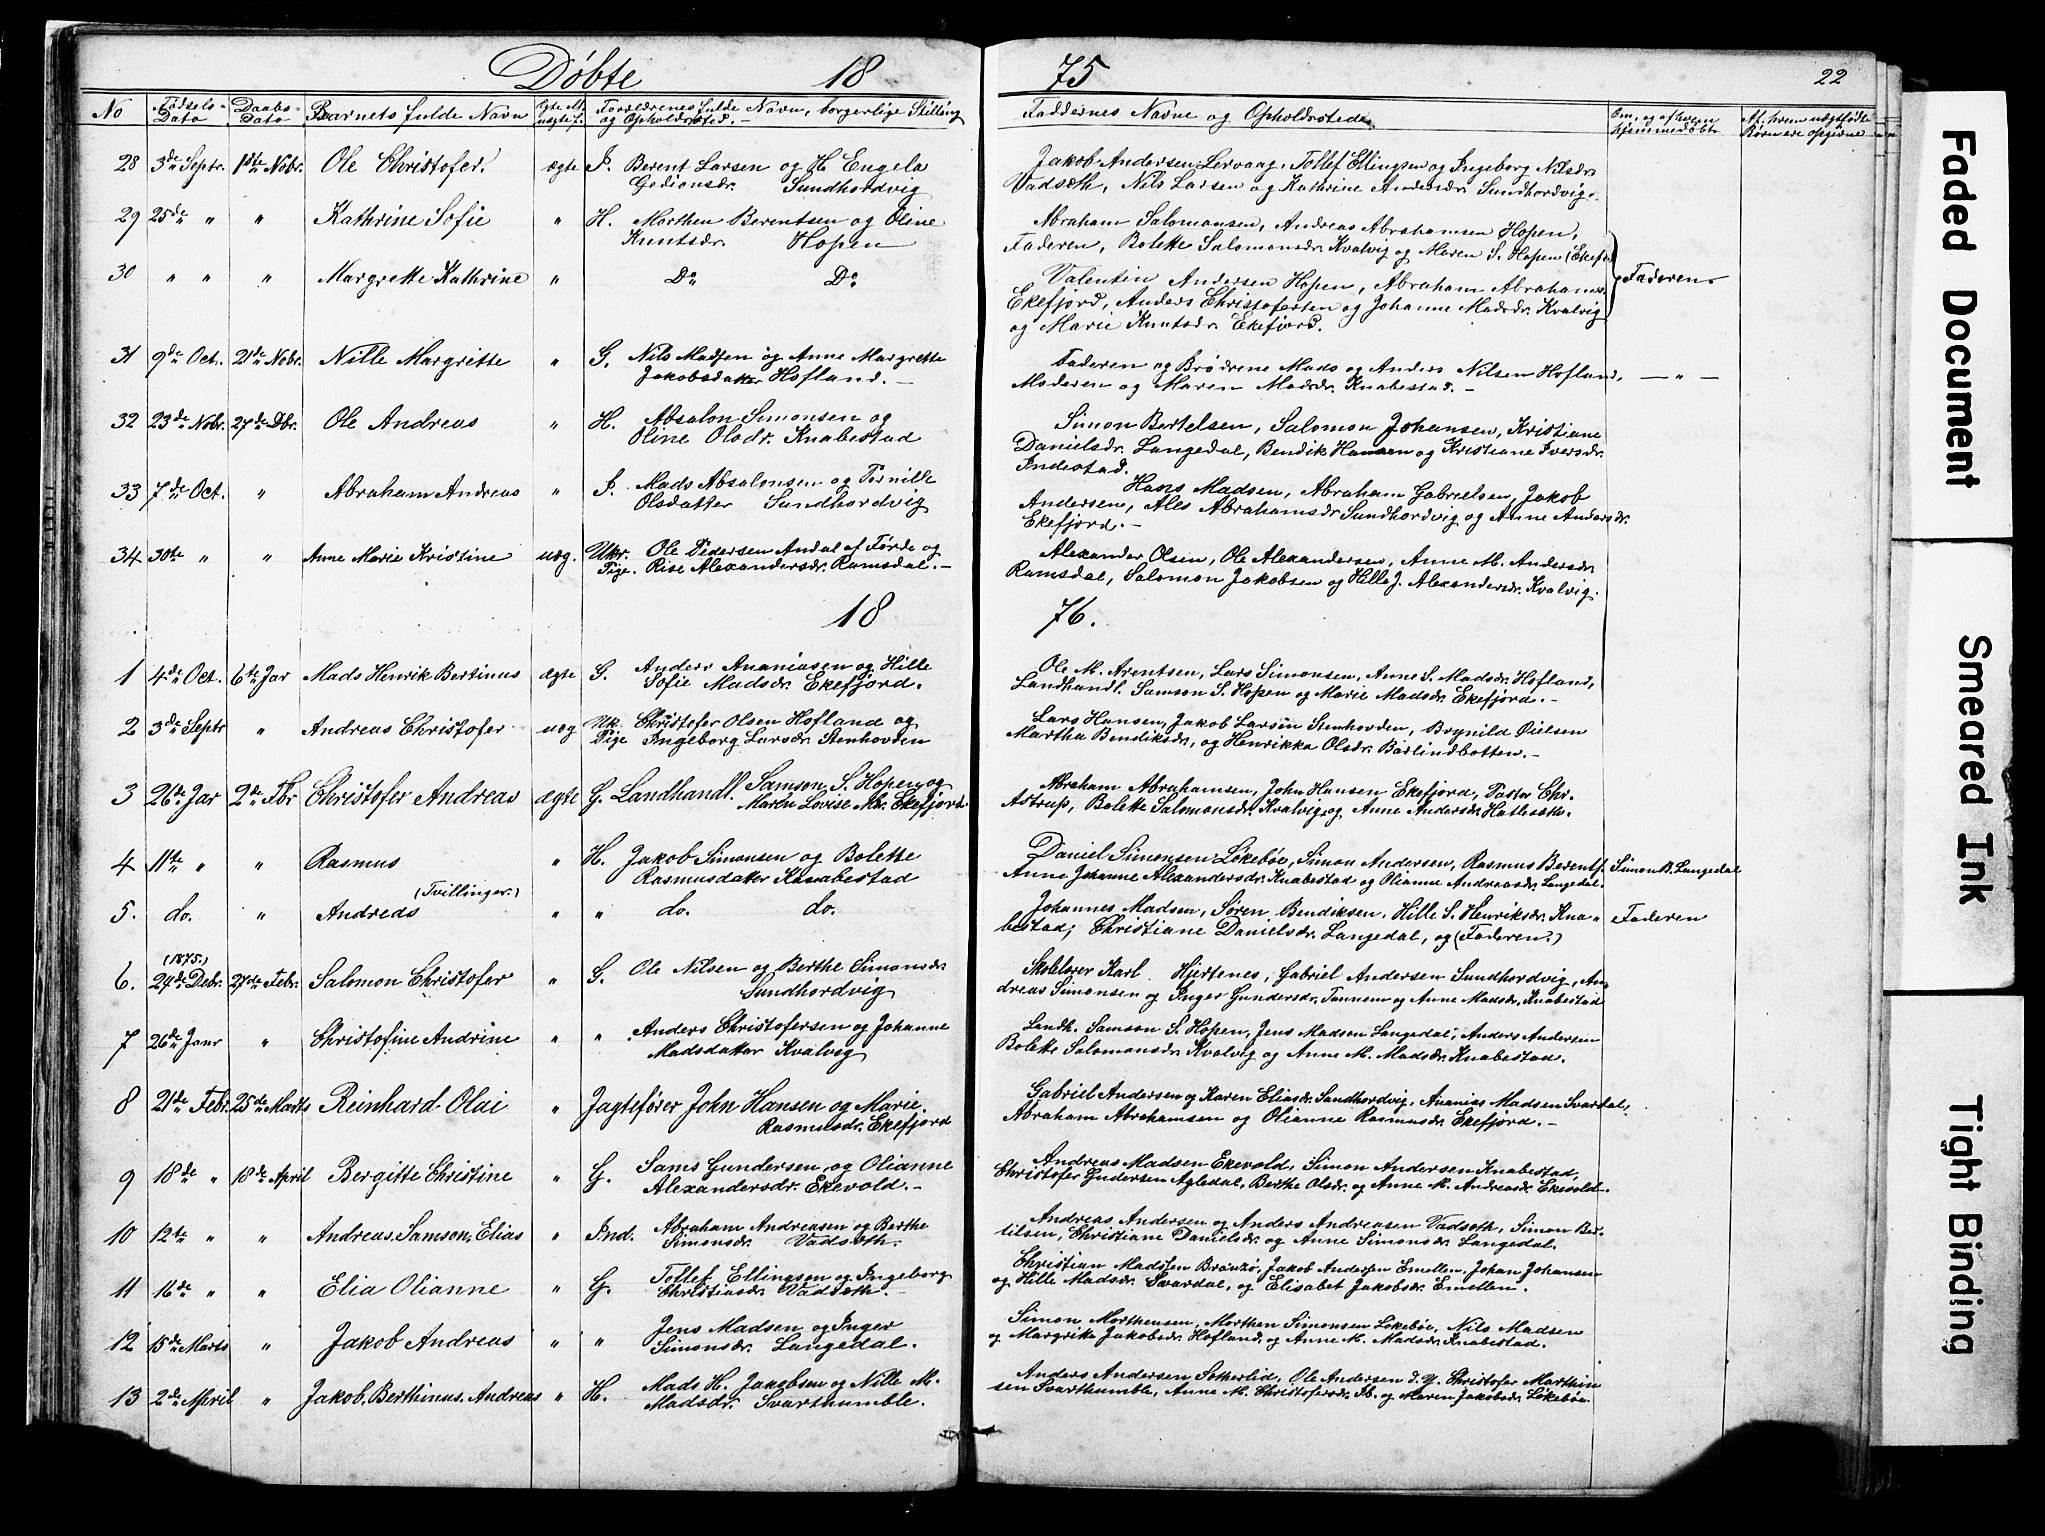 Døbte 18 75 22
No Fødsels-Dato Daabs-Dato Barnets fulde Navn Ægte el. uægte f. Forældrenes fulde Navn, borgerlige Stilling og Opholdssted.- Faddernes Navne og Opholdssteder Om, og af hvem hjemmedøbt Af hvem uægtefødte Børn ere opgivne
28 3de Septr. 1ste Nobr. Ole Christofer. ægte I. Berent Larsen og H Engela
Gedionsdr. Sundhordvig
Jakob Andersen Lervaag, Tollef Ellingsen og Ingeborg Nilsdr.
Vadseth, Nils Larsen og Kathrine Andersdr. Sundhordvig.
29 25de " " Kathrine Sofie " H. Morthen Berentsen og Oline
Knutsdr. Hopen
Abraham Salomonsen, Andreas Abrahamsen Hopen,
Faderen, Bolette Salomonsdr. Kvalvig og Maren S. Hopen (Ekefj.
30 " " " Margrette Kathrine " Do Do
Valentin Andersen Hopen, Abraham Abrahams. Faderen
Ekefjord, Anders Christofersen og Johanne Madsdr. Kvalvig
og Marie Knutsdr. Ekefjord.
31 9de Oct. 21de Nobr. Nille Margritte " G. Nils Madsen og Anne Margrette
Jakobsdatter Hofland.-
Faderen og Brødrene Mads og Anders Nilsen Hofland, — " —
Moderen og Maren Madsdr. Knabestad.-
32 23de Nobr. 27de Dbr. Ole Andreas " H. Absalon Simonsen og
Oline Olsdr. Knabestad
Simon Bertelsen, Salomon Johansen, Kristiane
Danielsdr. Langedal, Bendik Hansen og Kristiane Iversdr.
Indestad.
33 7de Oct. " Abraham Andreas " I. Mads Absalonsen og Pernille
Olsdatter Sundhordvig
Hans Madsen, Abraham Gabrielsen, Jakob
Andersen, Ales Abrahamsdr Sundhordvig og Anne Andersdr.
Ekefjord.-
34 30te " " Anne Marie Kristine uæg. Ukr. Ole Pedersen Andal af Førde og
Pige. Rise Alexandersdr. Ramsdal.-
Alexander Olsen, Ole Alexandersen, Anne M. Andersdr.
Ramsdal, Salomon Jakobsen og Hille J. Alexandersdr. Kvalvig.
18 76.
1 4de Oct. 6te Jar Mads Henrik Bertinus ægte G. Anders Ananiasen og Hille
Sofie Madsdr. Ekefjord.
Ole M. Arentsen, Lars Simonsen, Anne S. Madsdr. Hofland,
Landhandl. Samson S. Hopen og Marie Madsdr. Ekefjord.-
2 3de Septr " Andreas Christofer uæg Uk. Christofer Olsen Hofland og
Pige Ingeborg Larsdr. Stenhovden
Lars Hansen, Jakob Larsen Stenhovden, Brynild Oielsen
Martha Bendiksdr, og Henrikka Olsdr. Barlindbotten.-
3 26de Jar 2de Fbr Christofer Andreas ægte G. Landhandl. Samson S. Hopen og
Maren Lovise Abr. Ekefjord
Abraham Abrahamsen, John Hansen Ekefjord, Pastor Chr.
Astrup, Bolette Salomonsdr. Kvalvig og Anne Andersdr. Hatlesæt.
4 11te " " Rasmus " H. Jakob Simonsen og Bolette
Rasmusdatter Knabestad
Daniel Simonsen Løkebøe, Simon Andersen, Rasmus Berentf. Simon B. Langedal
Anne Johanne Alexandersdr. Knabestad og Olianne Andreasdr. Langedal.
(Tvillinger.)
5. do. " Andreas " " do. do.
Johannes Madsen, Søren Bendiksen, Hille S. Henriksdr. Kna- Faderen
bestad; Christiane Danielsdr. Langedal, og (Faderen.)
(1875.)
6. 24de Debr. 27de Febr. Salomon Christofer " G. Ole Nilsen og Berthe Simonsdr.
Sundhordvig
Skolelærer Karl Hjertenes, Gabriel Andersen Sundhordvig, An
dreas Simonsen og Inger Gundersdr. Tannem og Anne Madsdr. Knabestad
7 26de Janr " Christofine Andrine " " Anders Christofersen og Johanne
Madsdatter Kvalvig
Landh. Samson S. Hopen, Jens Madsen Langedal, Anders Andersen
Bolette Salomonsdr. Kvalvig og Anne M. Madsdr. Knabestad.
8 21de Febr. 25de Marts Reinhard Olai " Jagtefører John Hansen og Marie
Rasmusdr. Ekefjord
Gabriel Andersen og Karen Eliasdr. Sundhordvig, Ananias Madsen Svardal,
Abraham Abrahamsen og Olianne Rasmusdr. Ekefjord.-
9 18de " 18de April Bergitte Christine " G. Sams Gundersen og Olianne
Alexandersdr. Ekevold.-
Andreas Madsen Ekevold, Simon Andersen Knabestad,
Christofer Gudersen Agledal, Berthe Olsdr. og Anne M. Andreasdr. Ekevold.
10 12te " " Andreas Samson Elias " Ind. Abraham Andreasen og Berthe
Simonsdr. Vadseth.
Andreas Andersen og Anders Andreasen Vadseth, Simon Ber-
tilsen, Christiane Danielsdr. og Anne Simonsdr. Langedal.
11 16de " " Elia Olianne " G. Tollef Ellingsen og Ingeborg
Christiasdr. Vadseth.-
Christian Madsen Brandsø, Jakob Andersen Emellem, Johan Johansen
og Hille Madsdr. Svardal, og Elisabet Jakobsdr. Emellem.
12 15de Marts " Jakob Andreas " " Jens Madsen og Inger
Simonsdr. Langedal.
Simon Morthensen, Morthen Simonsen Løkebøe, Nils Madsen
og Margrite Jakobsdr. Hofland, og Anne M. Madsdr. Knabestad.
13 2de April " Jakob Berthinus Andreas " H. Mads H. Jakobsen og Nille M.
Madsdr. Svarthumble.
Anders Andersen Sætherlid, Ole Andersen d. y. Christofer Marthin
sen Svarthumble, Anne M. Christofersdr. Ib. og Maren Jakobsdr. Løkebøe.
Faded Document
Smeared Ink
Tight Binding